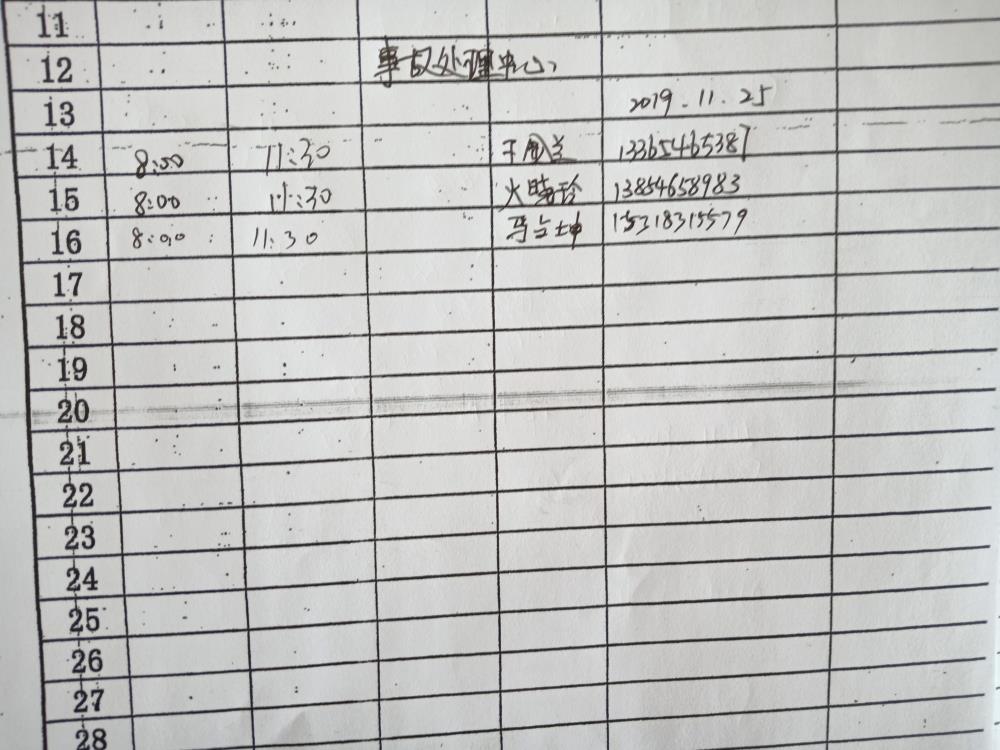 11
12 事故处理中心
13 2019.11.25
14 8:00 11:30 13365465387
15 8:00 11:30 火晓玲 13854658983
16 8:00 11:30 马占坤 15318315579
17
18
19
20
21
22
23
24
25
26
27
28